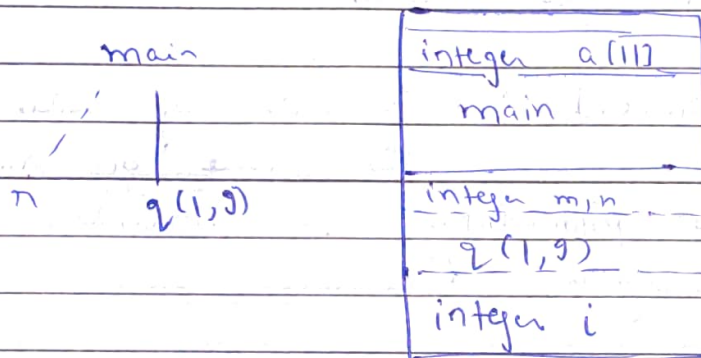 main
r q(1,9)
integer a[11]
main
integer m,n
q(1,9)
integer i